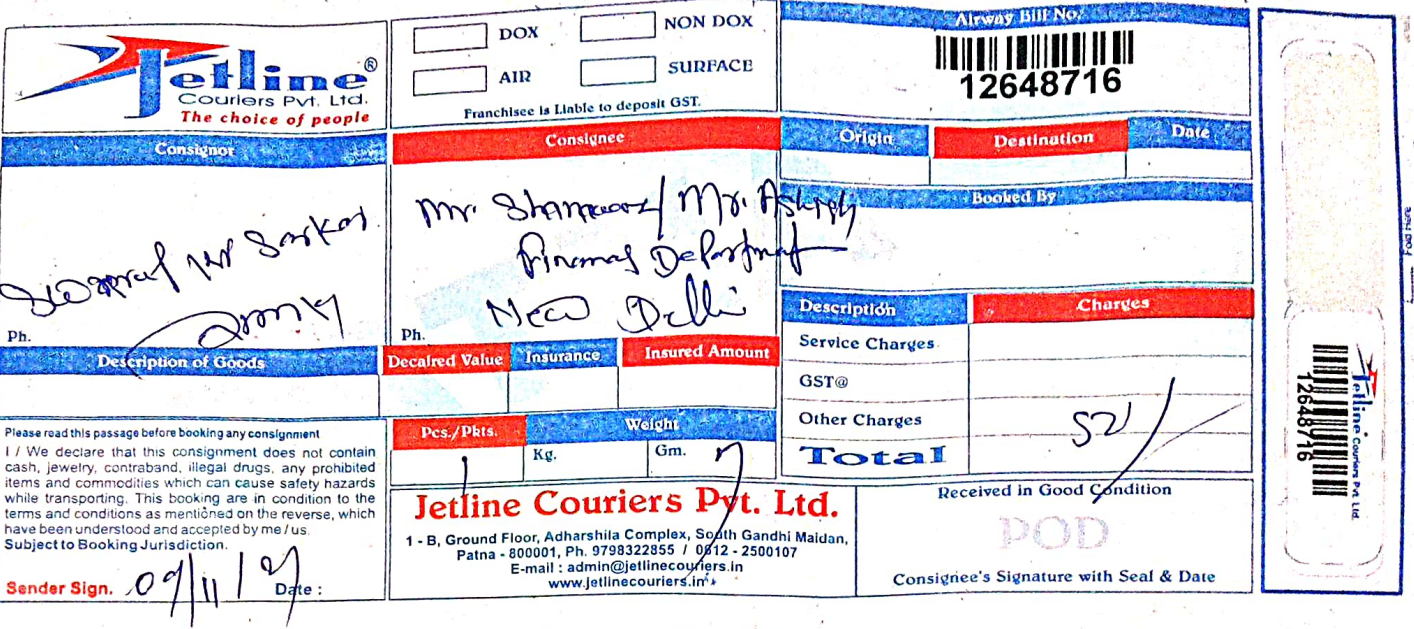 Jetline®
Couriers Pvt. Ltd.
The choice of people
DOX
NON DOX
AIR
SURFACE
Franchisee is Liable to deposit GST.
Airway Bill No.
12648716
Origin
Destination
Date
Consignor
Sarkar
Ph.
Consignee
Mr. / Mr.
Department
New Delhi
Ph.
Booked By
Description of Goods
Decalred Value
Insurance
Insured Amount
Description
Charges
Service Charges
GST@
Other Charges
Total
52/
Pcs./Pkts.
Weight
Kg.
Gm.
1
Please read this passage before booking any consignment
I / We declare that this consignment does not contain
cash, jewelry, contraband, illegal drugs, any prohibited
items and commodities which can cause safety hazards
while transporting. This booking are in condition to the
terms and conditions as mentioned on the reverse, which
have been understood and accepted by me / us.
Subject to Booking Jurisdiction.
Sender Sign.
Date :
09/11/
Jetline Couriers Pvt. Ltd.
1 - B, Ground Floor, Adharshila Complex, South Gandhi Maidan,
Patna - 800001, Ph. 9798322855 / 0612 - 2500107
E-mail : admin@jetlinecouriers.in
www.jetlinecouriers.in
Received in Good Condition
POD
Consignee's Signature with Seal & Date
Jetline Couriers Pvt. Ltd.
12648716
Fold Here